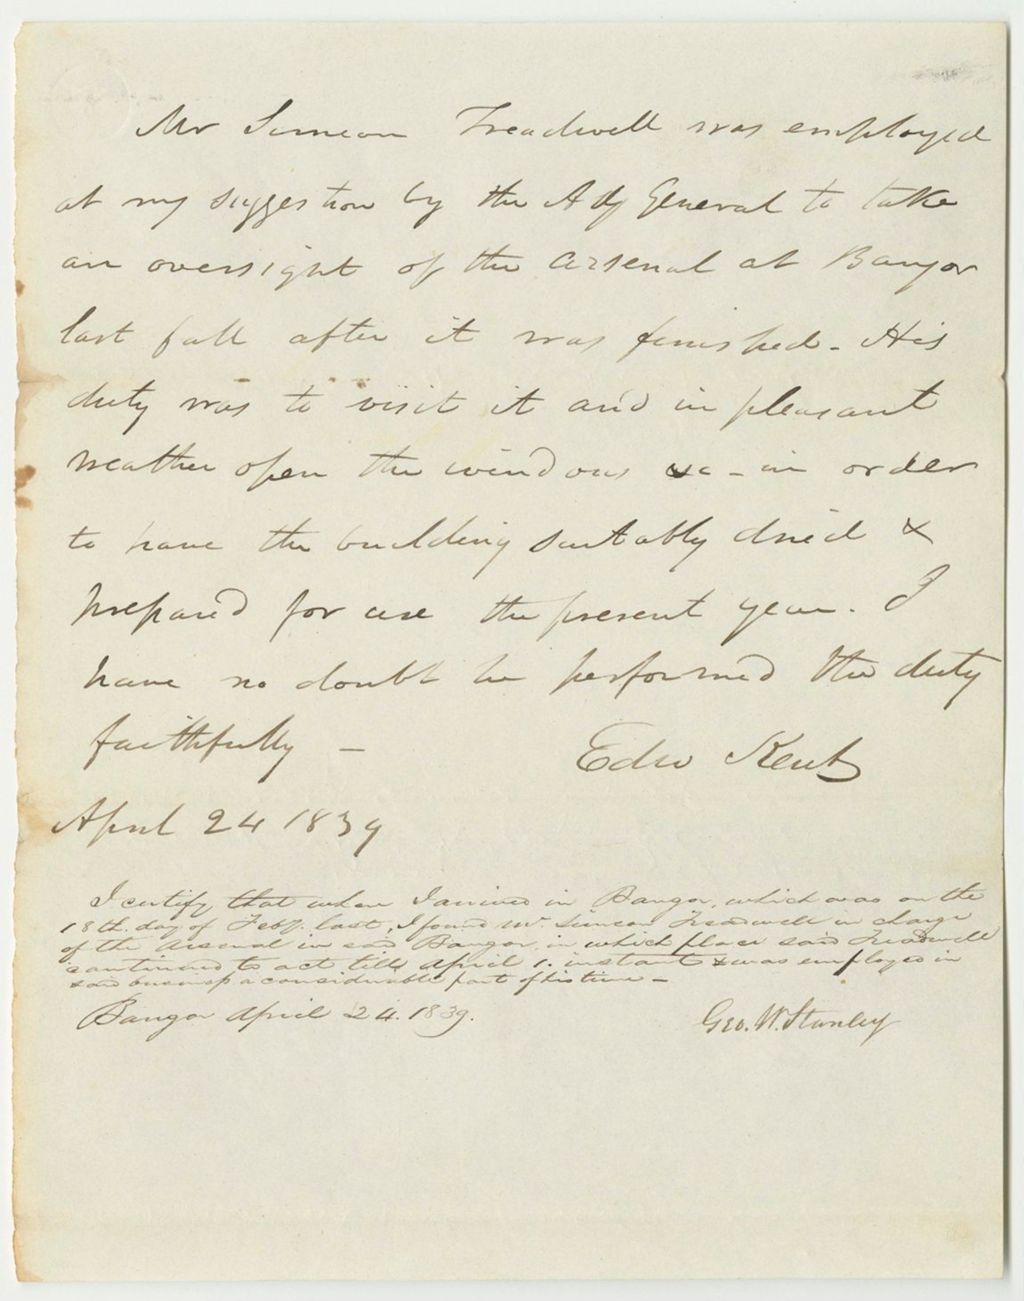 Mr Simeon Treadwell was employed
at my suggestion by the Adj General to take
an oversight of the Arsenal at Bangor
last fall after it was finished - His
duty was to visit it and in pleasant
weather open the windows &c - in order
to have the building suitably dried &
prepared for use the present year. I
have no doubt he performed the duty
faithfully -
Edw Kent
April 24 1839
I certify that when I arrived in Bangor, which was on the
18th. day of Feby. last, I found Mr. Simeon Treadwell in charge
of the Arsenal in said Bangor, in which place said Treadwell
continued to act till April 1. instant & was employed in
said a considerable part of his time -
Bangor April 24. 1839.
Geo. W. Stanley